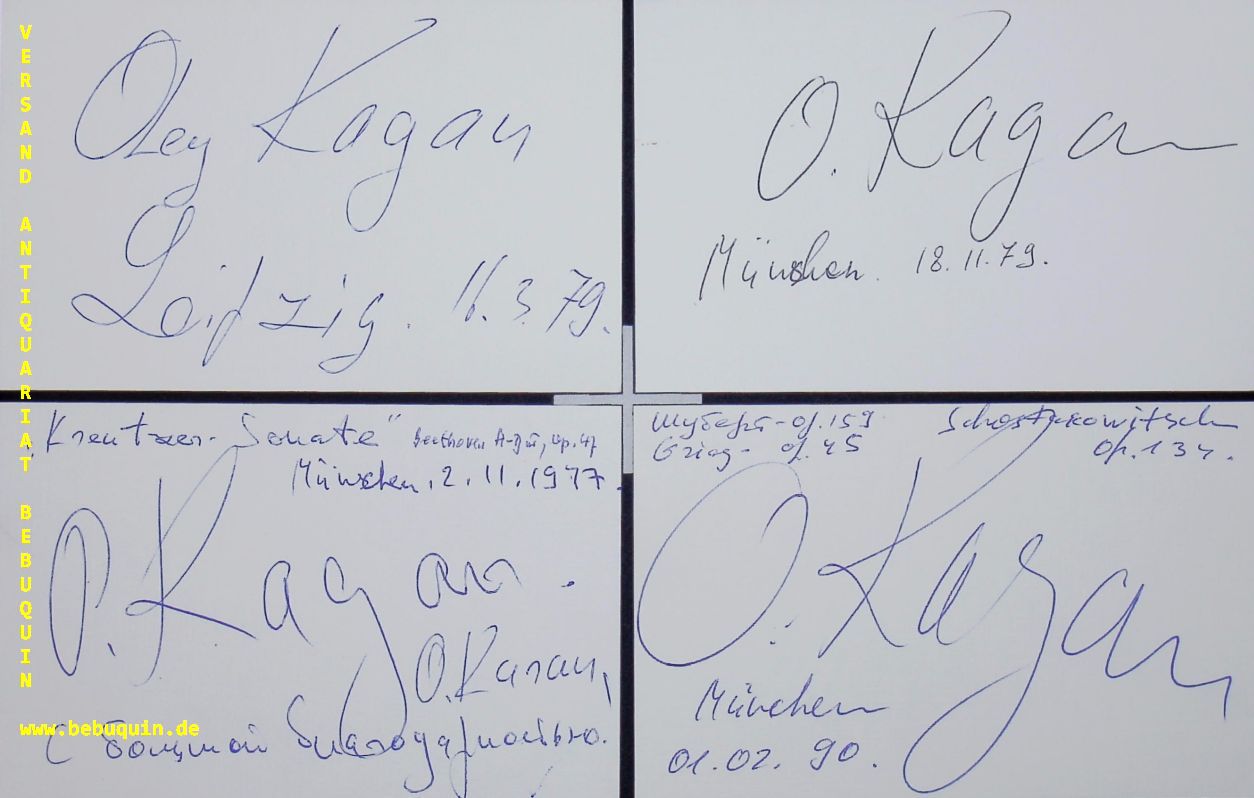 VERSAND ANTIQUARIAT BEBUQUIN
www.bebuquin.de
Oleg Kagan
Leipzig. 11.3.79.
O. Kagan
München. 18.11.79.
„Kreutzer-Sonate“ Beethoven A-Dur, op. 47
München, 2.11.1977.
O. Kagan.
О. Каган,
С большой благодарностью.
Шуберт - op. 159
Grieg - op. 45
Schostakowitsch
op. 134.
O. Kagan
München
01.02.90.